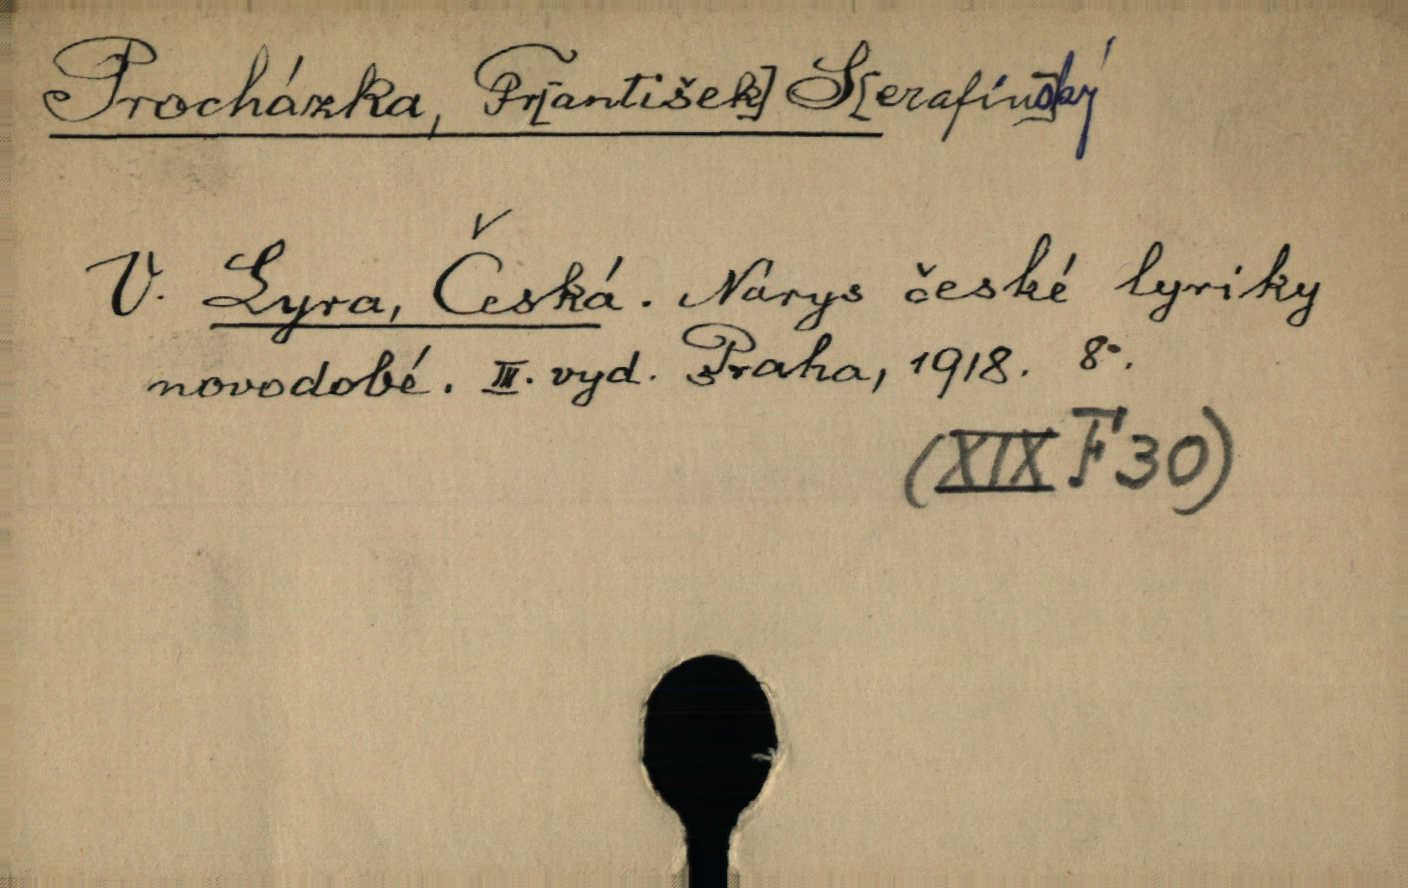 Procházka, Fr[antišek] S[erafínský
V. Lyra, Česká. Nárys české lyriky
novodobé. III. vyd. Praha, 1918. 8°.
(XIX F 30)